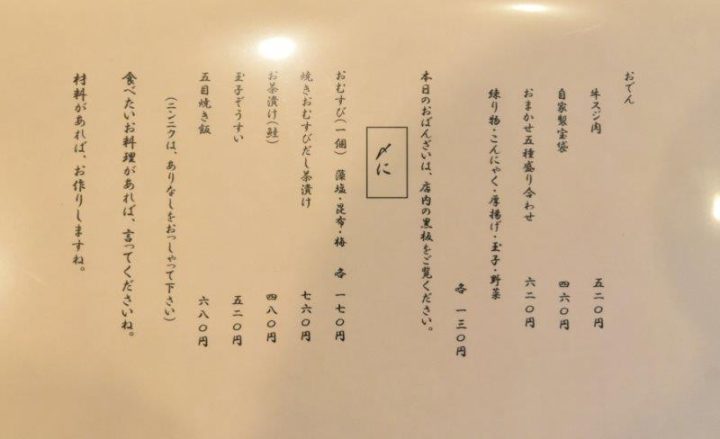 おでん
牛スジ肉 五二〇円
自家製宝袋 四六〇円
おまかせ五種盛り合わせ 六二〇円
練り物・こんにゃく・厚揚げ・玉子・野菜
各 一三〇円
本日のおばんざいは、店内の黒板をご覧ください。
〆に
おむすび(一個) 藻塩・昆布・梅 各 一七〇円
焼きおむすびだし茶漬け 七六〇円
お茶漬け(鮭) 四八〇円
玉子ぞうすい 五二〇円
五目焼き飯 六八〇円
(ニンニクは、ありなしをおっしゃって下さい)
食べたいお料理があれば、言ってくださいね。
材料があれば、お作りしますね。